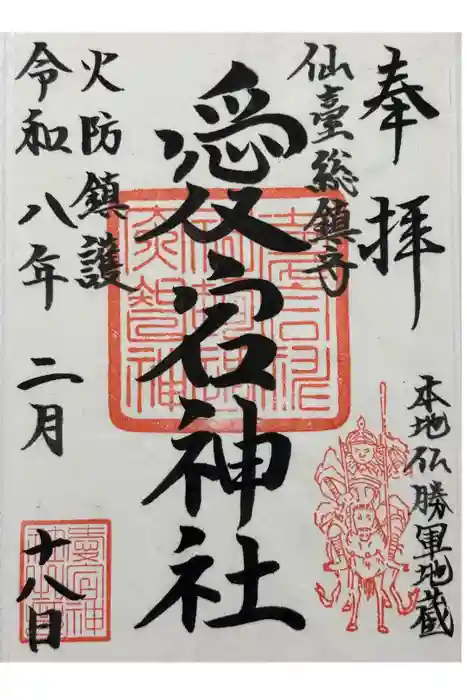 奉拝
本地仏勝軍地蔵
仙臺総鎮守
愛宕神社
火防鎮護
令和八年二月十八日